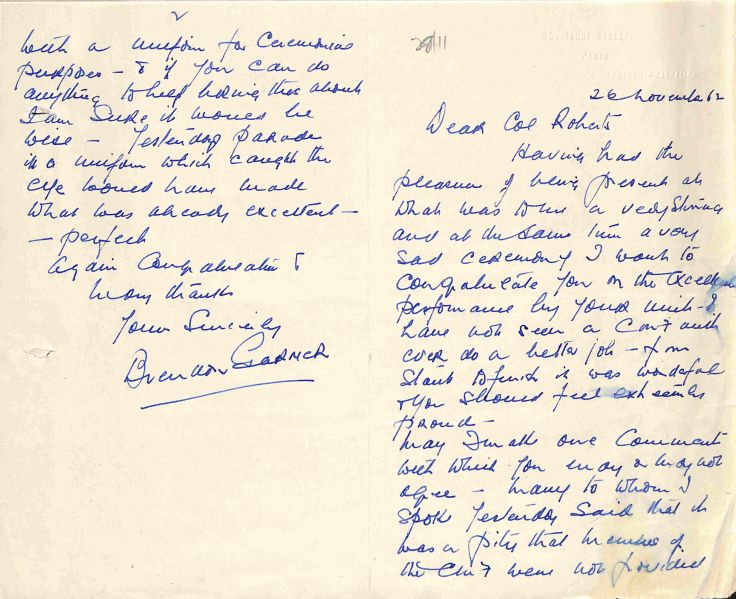 28/11
45, Mount Street,
Perth
Western Australia
26 November 62
Dear Col Roberts
Having had the
pleasure of being present at
what was to me a very stirring
and at the same time a very
sad ceremony I want to
congratulate you on the excellent
performance by your unit - I
have not seen a CMF unit
ever do a better job - from
start to finish it was wonderful
& you should feel extremely
proud -
May I make one comment
with which you may or may not
agree - many to whom I
spoke yesterday said that it
was a pity that members of
the CMF were not provided
2
with a uniform for ceremonial
purposes - & if you can do
anything to help bring this about
I am sure it would be
wise - Yesterday parade
in a uniform which caught the
eye would have made
what was already excellent -
- perfect
Again Congratulations &
many thanks
Yours Sincerely
Brendon